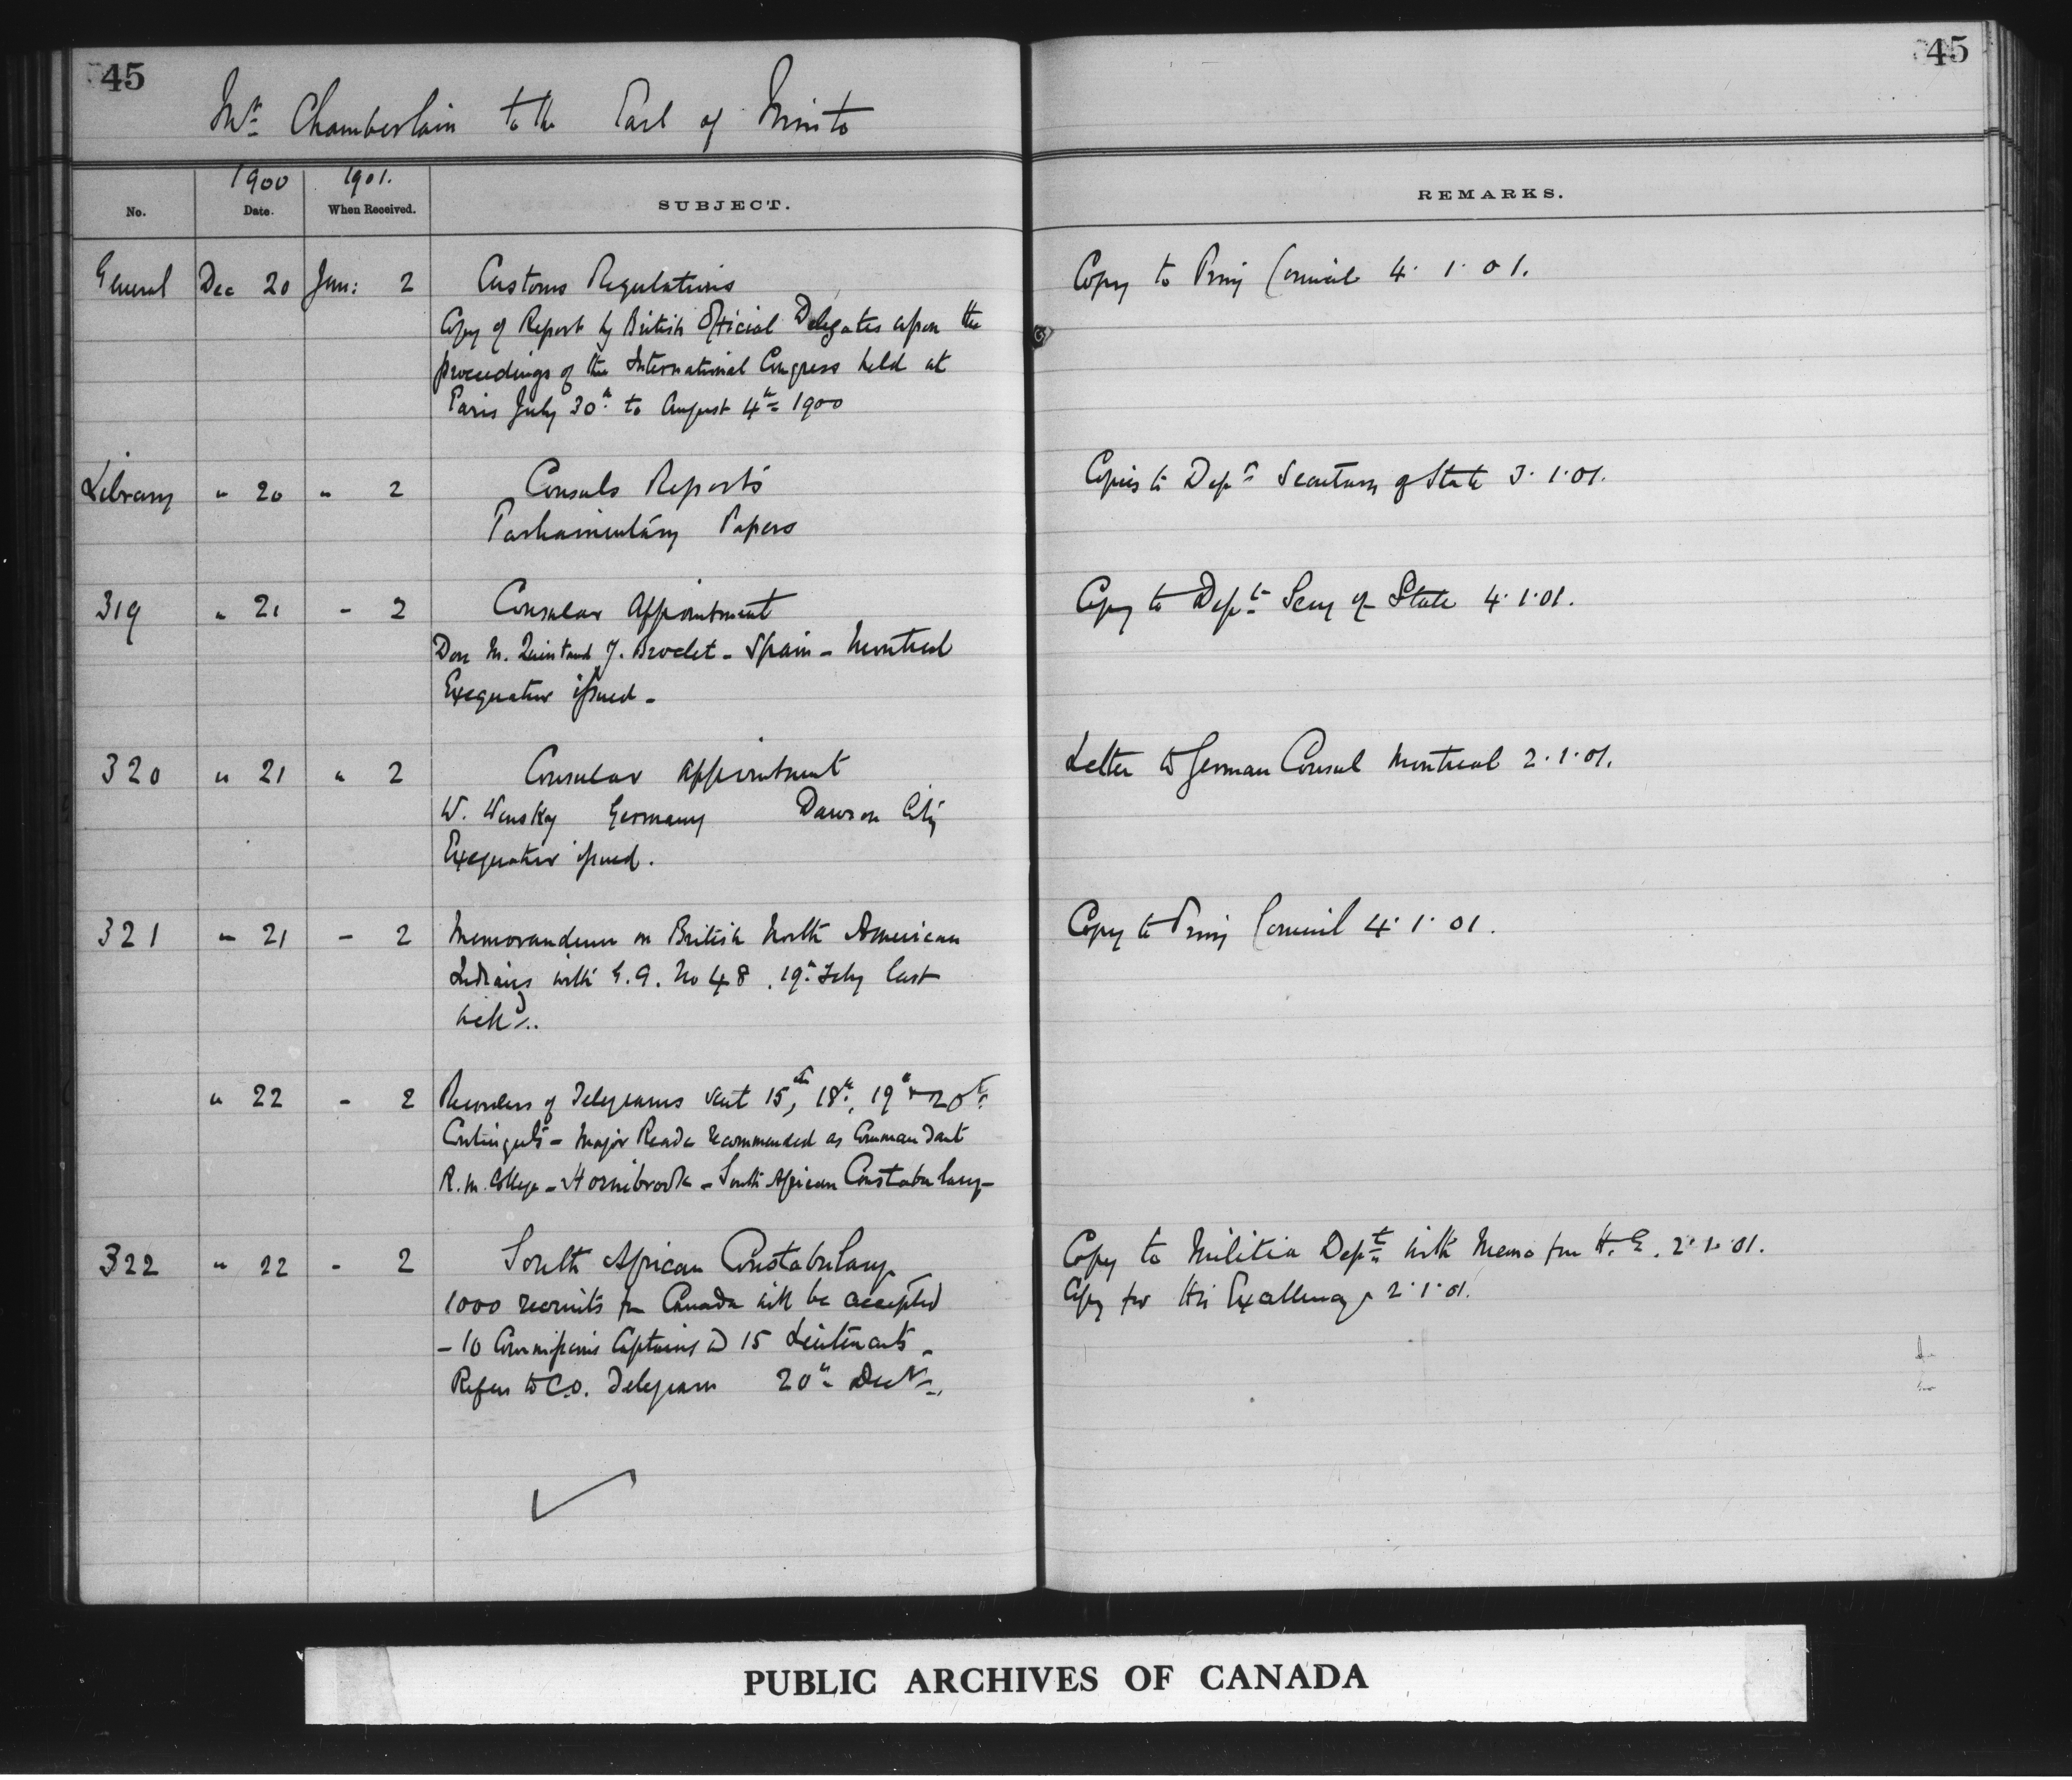 45
45
Mr. Chamberlain to the Earl of Minto
1900 1901.
No. Date. When Received. SUBJECT. REMARKS.
General Dec 20 Jan: 2 Customs Regulations Copy to Privy Council 4. 1. 01.
Copy of Report by British Official Delegates upon the
proceedings of the International Congress held at
Paris July 30th to August 4th 1900
Library " 20 " 2 Consuls Reports Copies to Dept Secretary of State 3. 1. 01.
Parliamentary Papers
319 " 21 - 2 Consular Appointment Copy to Dept Secy of State 4. 1. 01.
Don M. J. - Spain - Montreal
Exequatur issued -
320 " 21 " 2 Consular Appointment Letter to German Consul Montreal 2. 1. 01.
W. Wensky Germany Dawson City
Exequatur issued.
321 " 21 - 2 Memorandum on British North American Copy to Privy Council 4. 1. 01.
Indians with No 48. 19th Feby last

" 22 - 2 of Telegrams sent 15th, 18th, 19th & 20th
Contingents - Major Reade recommended as Commandant
R. M. College - Hornibrook - South African Constabulary -
322 " 22 - 2 South African Constabulary Copy to Militia Dept with Memo from H. E. 2. 1. 01.
1000 recruits from Canada will be accepted Copy for His Excellency 2. 1. 01.
- 10 Commissions Captains & 15 Lieutenants -
Refers to C.O. Telegram 20th Decr.
PUBLIC ARCHIVES OF CANADA